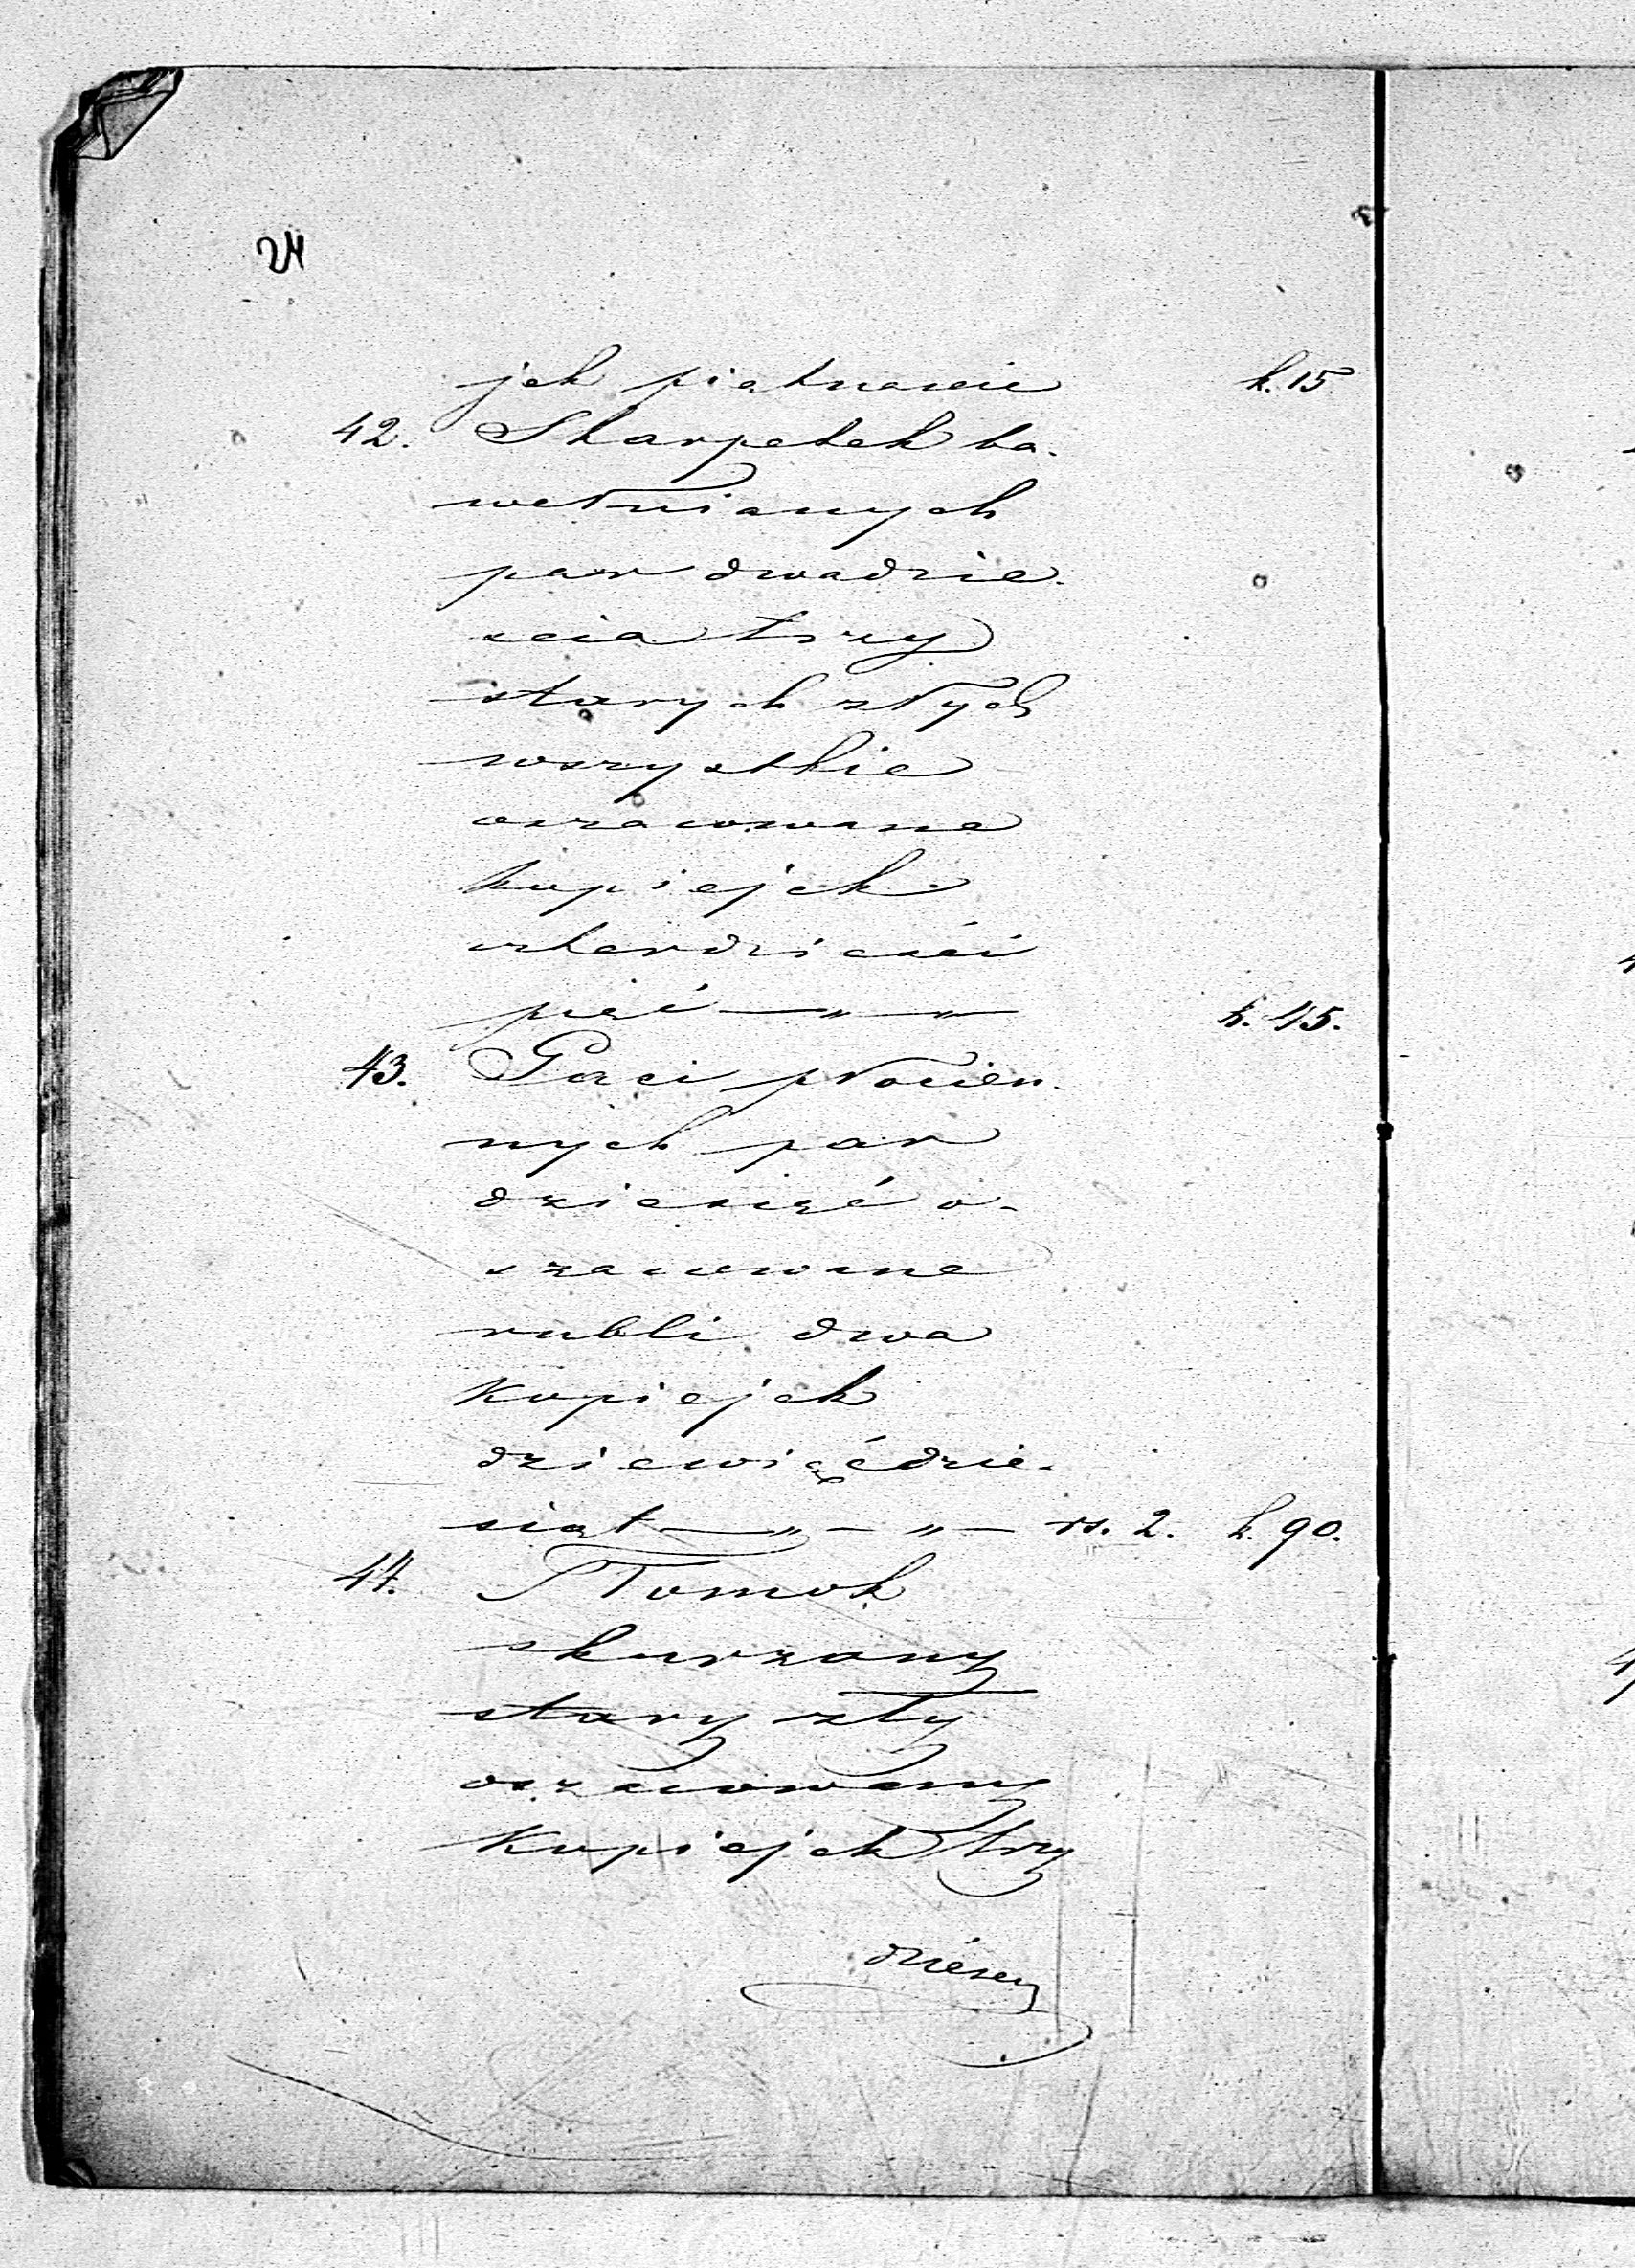 24
jek piętnaście k. 15.
42. Skarpetek ba-
wełnianych
par dwadzie-
ścia trzy
starych złych
wszystkie
oszacowane
kopiejek
czterdzieści
pięć —„— „— k. 45.
43. Gaci płócien-
nych par
dziesięć o-
szacowane
rubli dwa
kopiejek
dziewięćdzie-
siąt —„— „— rs. 2. k. 90.
44. Tłomok
skurzany
stary zły
oszacowany
kopiejek trzy